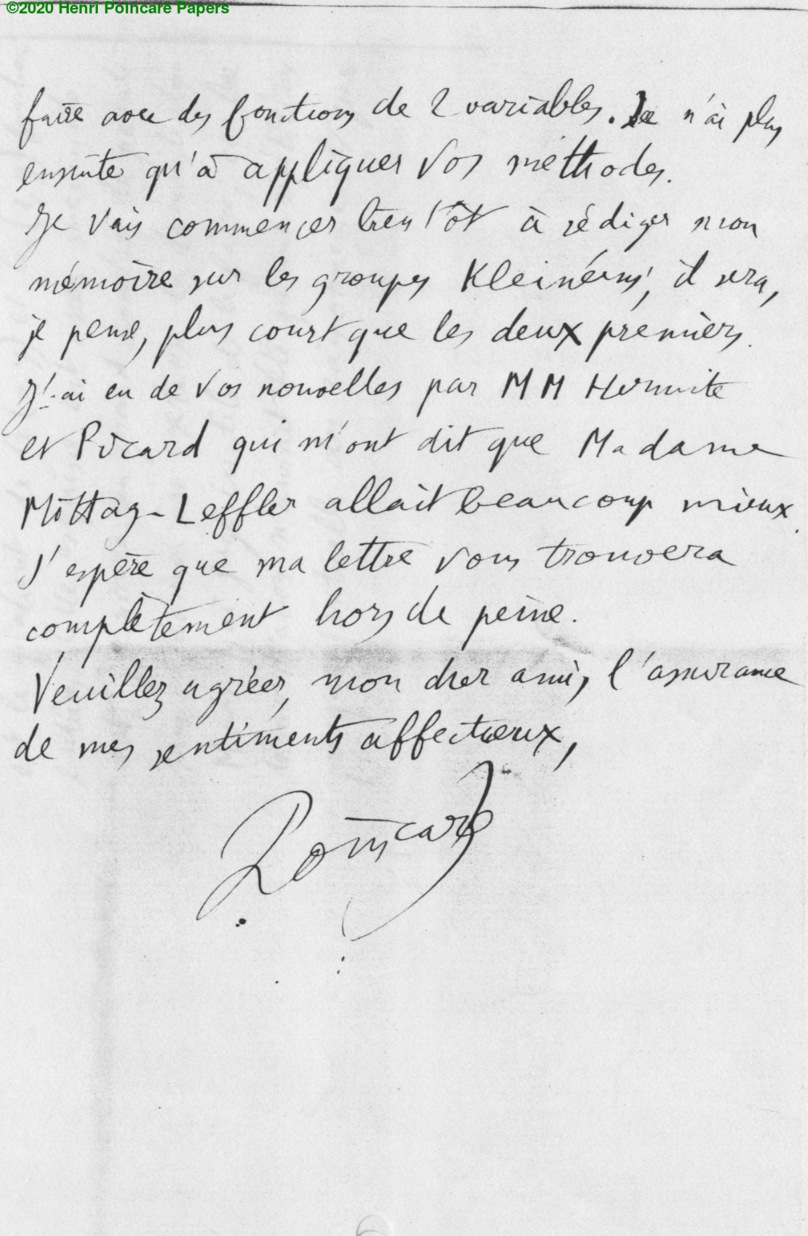 ©2020 Henri Poincaré Papers
faire avec des fonctions de 2 variables. Je n'ai plus
ensuite qu'à appliquer vos méthodes.
Je vais commencer bientôt à rédiger mon
mémoire sur les groupes Kleinéens; il sera,
je pense, plus court que les deux premiers.
J'ai eu de vos nouvelles par MM Hermite
et Picard qui m'ont dit que Madame
Mittag-Leffler allait beaucoup mieux.
J'espère que ma lettre vous trouvera
complètement hors de peine.
Veuillez agréer, mon cher ami, l'assurance
de mes sentiments affectueux,
Poincaré